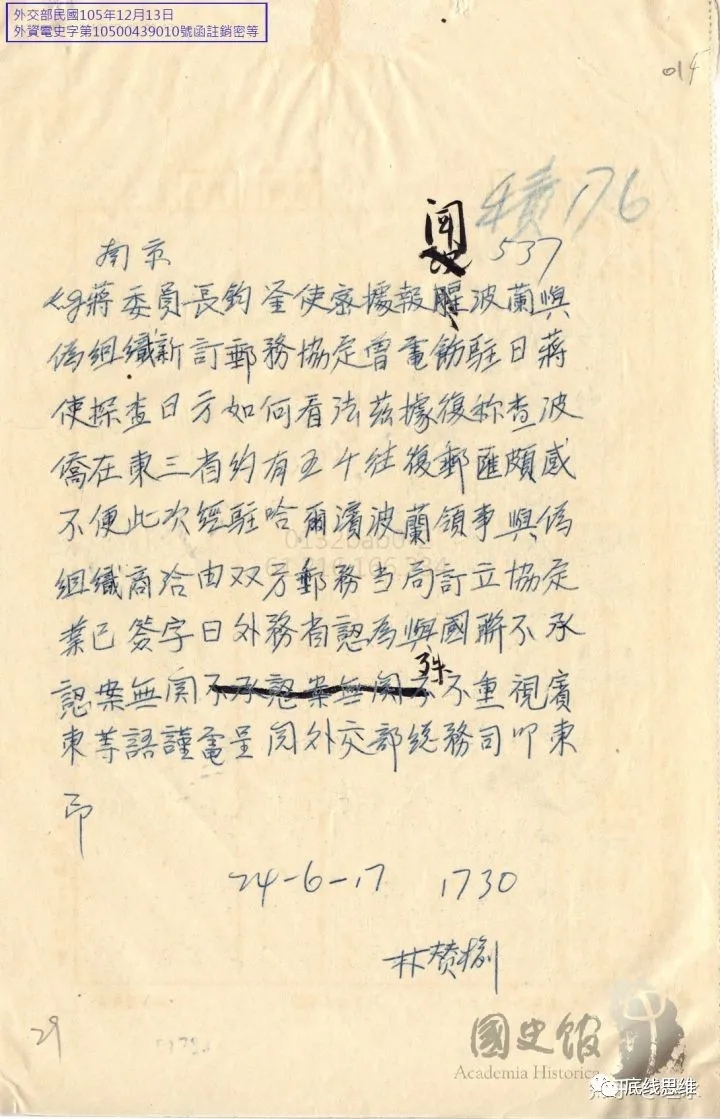 外交部民國105年12月13日
外資電史字第10500439010號函註銷密等
014
續176
537
聞
南京
蔣委員長鈞鉴使密據報腥波蘭與
偽組織新訂郵務協定曾電飭駐日蔣
使探查日方如何看法茲據復称查波
僑在東三省約有五千往復郵匯頗感
不便此次經駐哈爾濱波蘭領事與偽
組織商洽由双方郵務当局訂立協定
業已簽字日外務省認為與國聯不承
殊
認案無関不承認案無関不不重視廣
東等語謹電呈閱外交部総務司叩東
印
24-6-17 1730
林贊榆
29
國史館
Academia Historica
底线思维